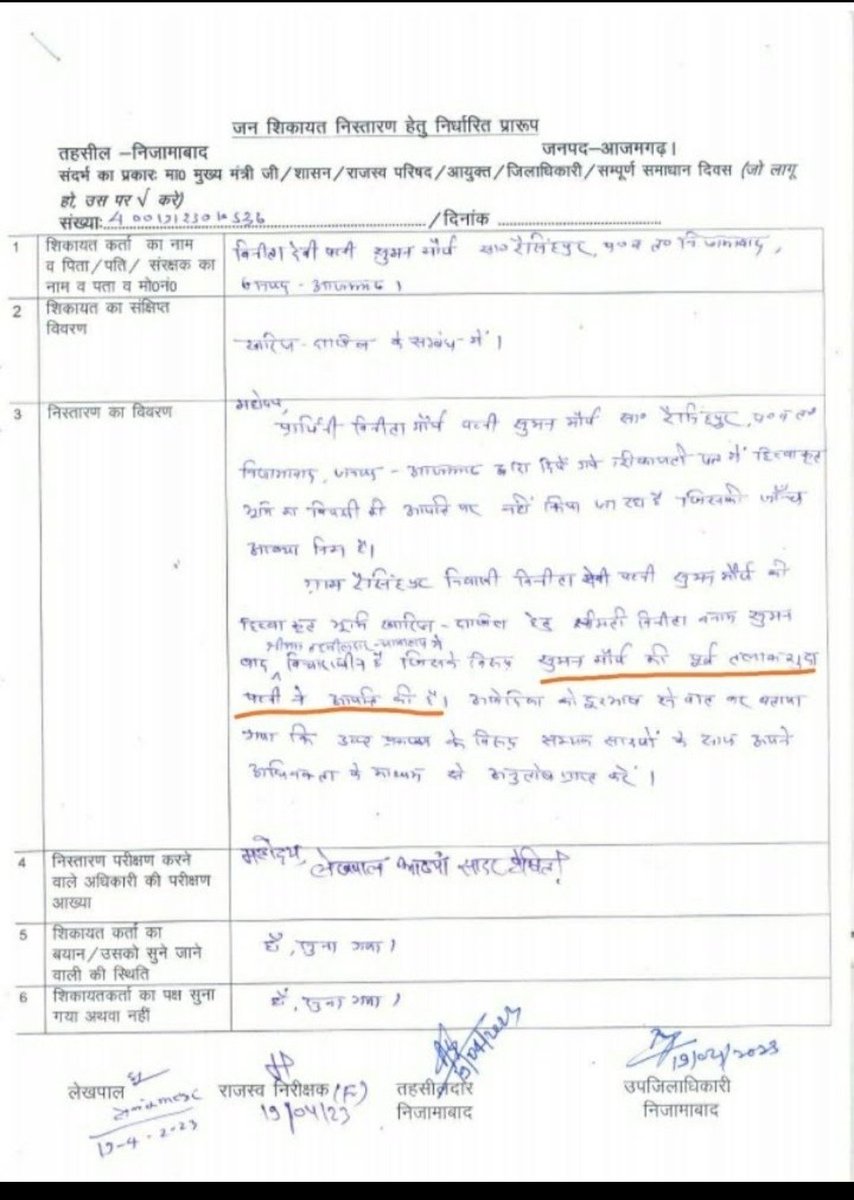 जन शिकायत निस्तारण हेतु निर्धारित प्रारूप
तहसील –निजामाबाद जनपद–आजमगढ़।
संदर्भ का प्रकारः मा0 मुख्य मंत्री जी/शासन/राजस्व परिषद/आयुक्त/जिलाधिकारी/सम्पूर्ण समाधान दिवस (जो लागू
हो, उस पर √ करे)
संख्याः /दिनांक
1 शिकायत कर्ता का नाम
व पिता/पति/ संरक्षक का
नाम व पता व मो0नं0
विनीता देवी पत्नी सुमन मौर्य सा० रैसिंहपुर, प० व त० निजामाबाद,
जनपद - आजमगढ़।
2 शिकायत का संक्षिप्त
विवरण
खारिज-दाखिल के सम्बंध में।
3 निस्तारण का विवरण
महोदय,
प्रार्थिनी विनीता मौर्य पत्नी सुमन मौर्य सा० रैसिंहपुर, प०व त०
निजामाबाद, जनपद - आजमगढ़ द्वारा दिये गये शिकायती पत्र में
भूमि विपक्षी की आपत्ति पर नहीं किया जा रहा है जिसकी जाँच
आख्या निम्न है।
ग्राम रैसिंहपुर निवासी विनीता देवी पत्नी सुमन मौर्य की
भूमि खारिज-दाखिल हेतु श्रीमती विनीता बनाम सुमन
श्रीमान तहसीलदार-न्यायालय में
वाद विचाराधीन है जिसके विरुद्ध सुमन मौर्य की पूर्व तलाकशुदा
पत्नी ने आपत्ति की है। आवेदिका को दूरभाष से वार्ता कर बताया
गया कि उक्त प्रकरण के विरुद्ध सम्यक साक्ष्यों के साथ अपने
अधिवक्ता के माध्यम से अनुतोष प्राप्त करें।
4 निस्तारण परीक्षण करने
वाले अधिकारी की परीक्षण
आख्या
महोदय,
लेखपाल आख्या सादर प्रेषित।
5 शिकायत कर्ता का
बयान/उसको सुने जाने
वाली की स्थिति
हाँ, सुना गया।
6 शिकायतकर्ता का पक्ष सुना
गया अथवा नहीं
हाँ, सुना गया।
लेखपाल राजस्व निरीक्षक (F) तहसीलदार उपजिलाधिकारी
19-4-2023 19/04/23 निजामाबाद निजामाबाद